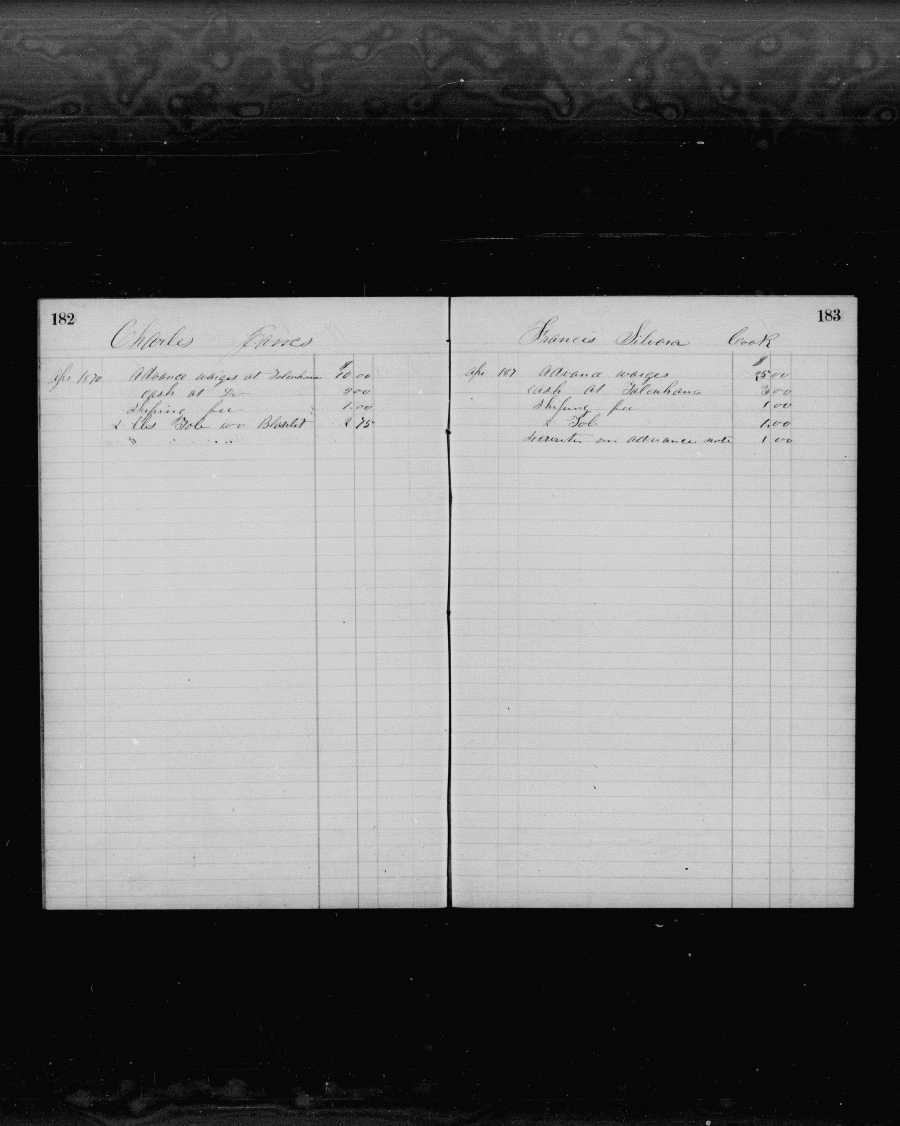 182
Charles James
$
Apr 1870 Advance warges at Talcahuano 10 00
cash at Do 5 00
shiping fee 1.00
2 lbs Tob 100 Blanket 2 75
" " " "
183
Francis Silvara Cook
$
Apr 187 Advance warges 25 00
cash at Talcahuano 3 00
shiping fee 1 00
2 Tob 1.00
on advance note 1 00